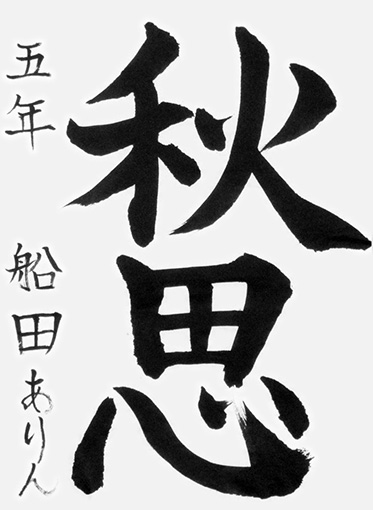 秋思
五年 船田ありん